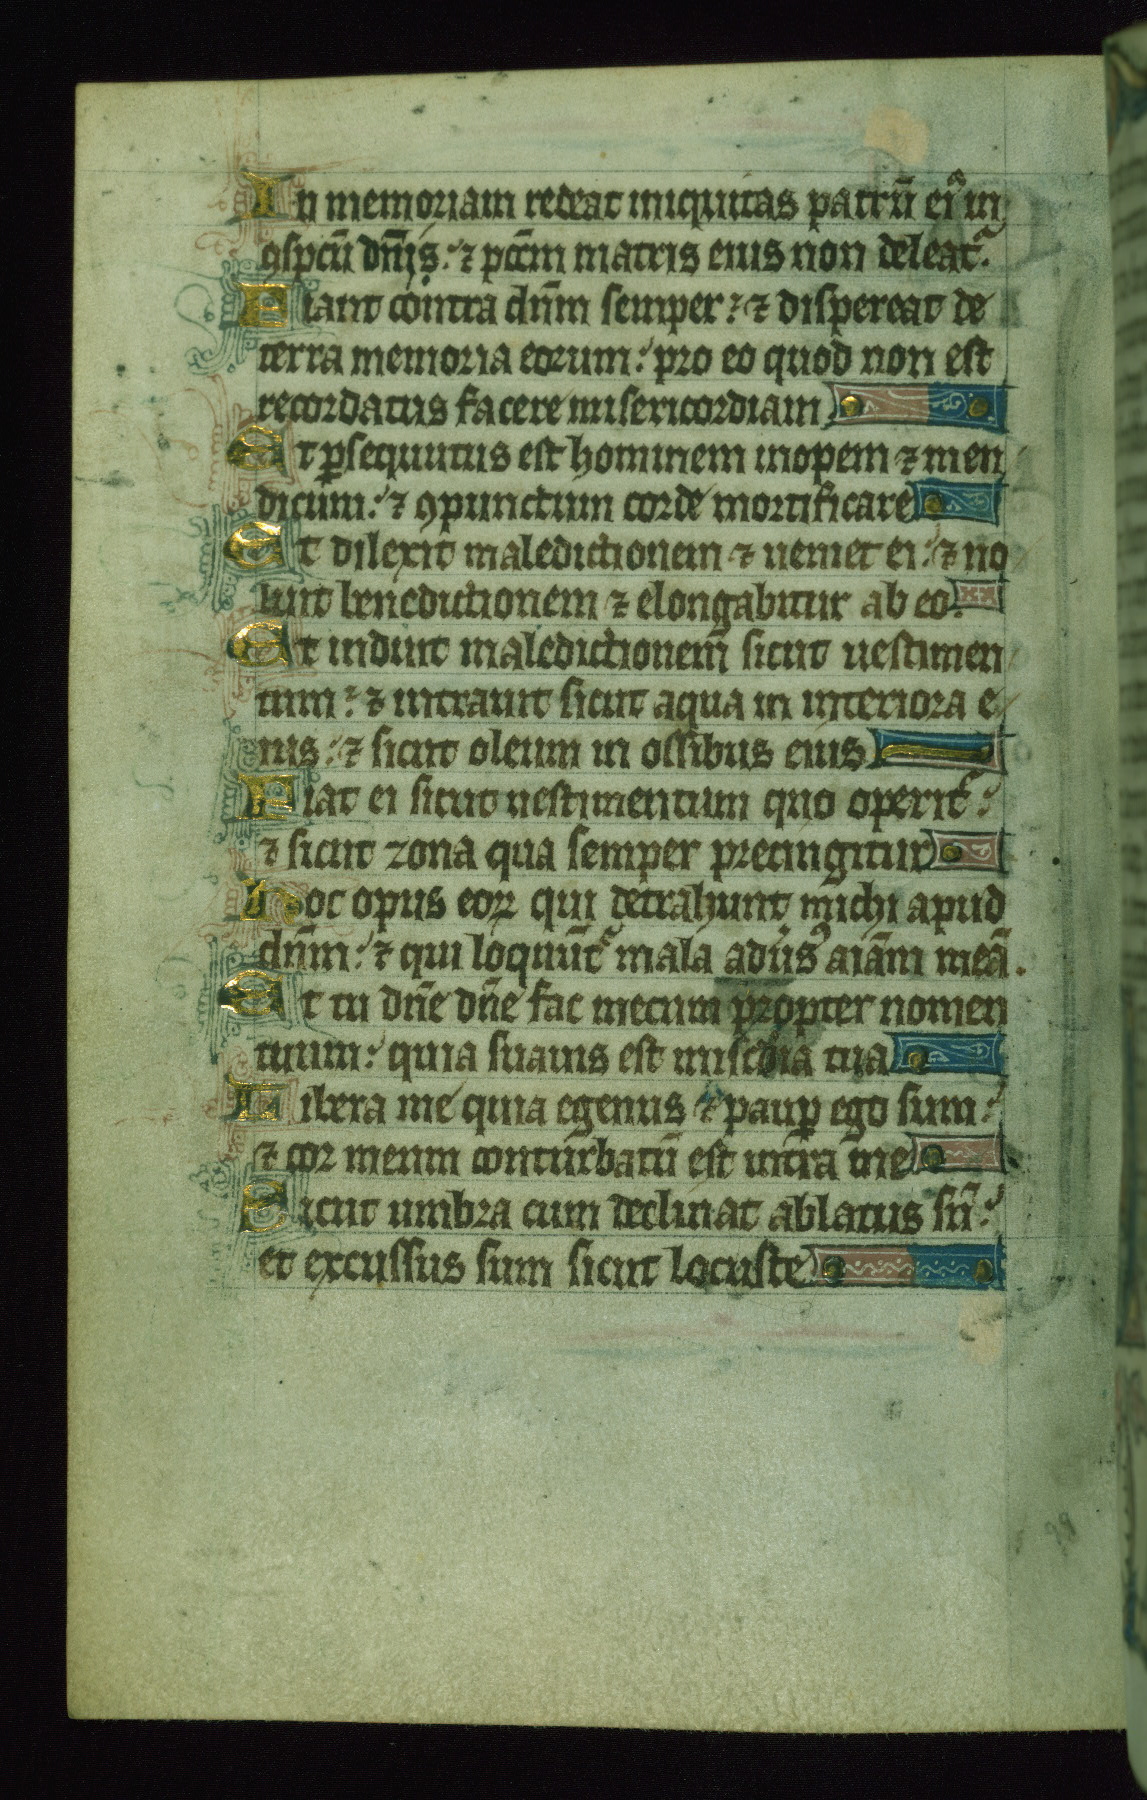 In memoriam redeat iniquitas patrū eiꝰ in
ꝯspcū dn̄is : ⁊ pctm̄ matris eius non deleatᷣ.
Fiant contra dn̄m semper : ⁊ dispereat de
terra memoria eorum : pro eo quod non est
recordatus facere misericordiam
Et ꝑsequutus est hominem inopem ⁊ men
dicum : ⁊ ꝯpunctum corde mortificare
Et dilexit maledictionem ⁊ ueniet ei : ⁊ no
luit benedictionem ⁊ elongabitur ab eo
Et induit maledictionem̄ sicut uestimen
tum : ⁊ intrauit sicut aqua in interiora e
uis : ⁊ sicut oleum in ossibus eius
Fiat ei sicut uestimentum quo operitᷣ :
⁊ sicut zona qua semper precingitur
Hoc opus eoꝝ qui detrahunt michi apud
dn̄m : ⁊ qui loquūtᷣ mala adūsꝰ aīam meā.
Et tu dn̄e dn̄e fac mecum propter nomen
tuum : quia suauis est misc̄dia tua
Libera me quia egenus ⁊ paup̱ ego sum :
⁊ cor meum conturbatū est int̄ra me
Sicut umbra cum declinat ablatus sū :
et excussus sum sicut locuste